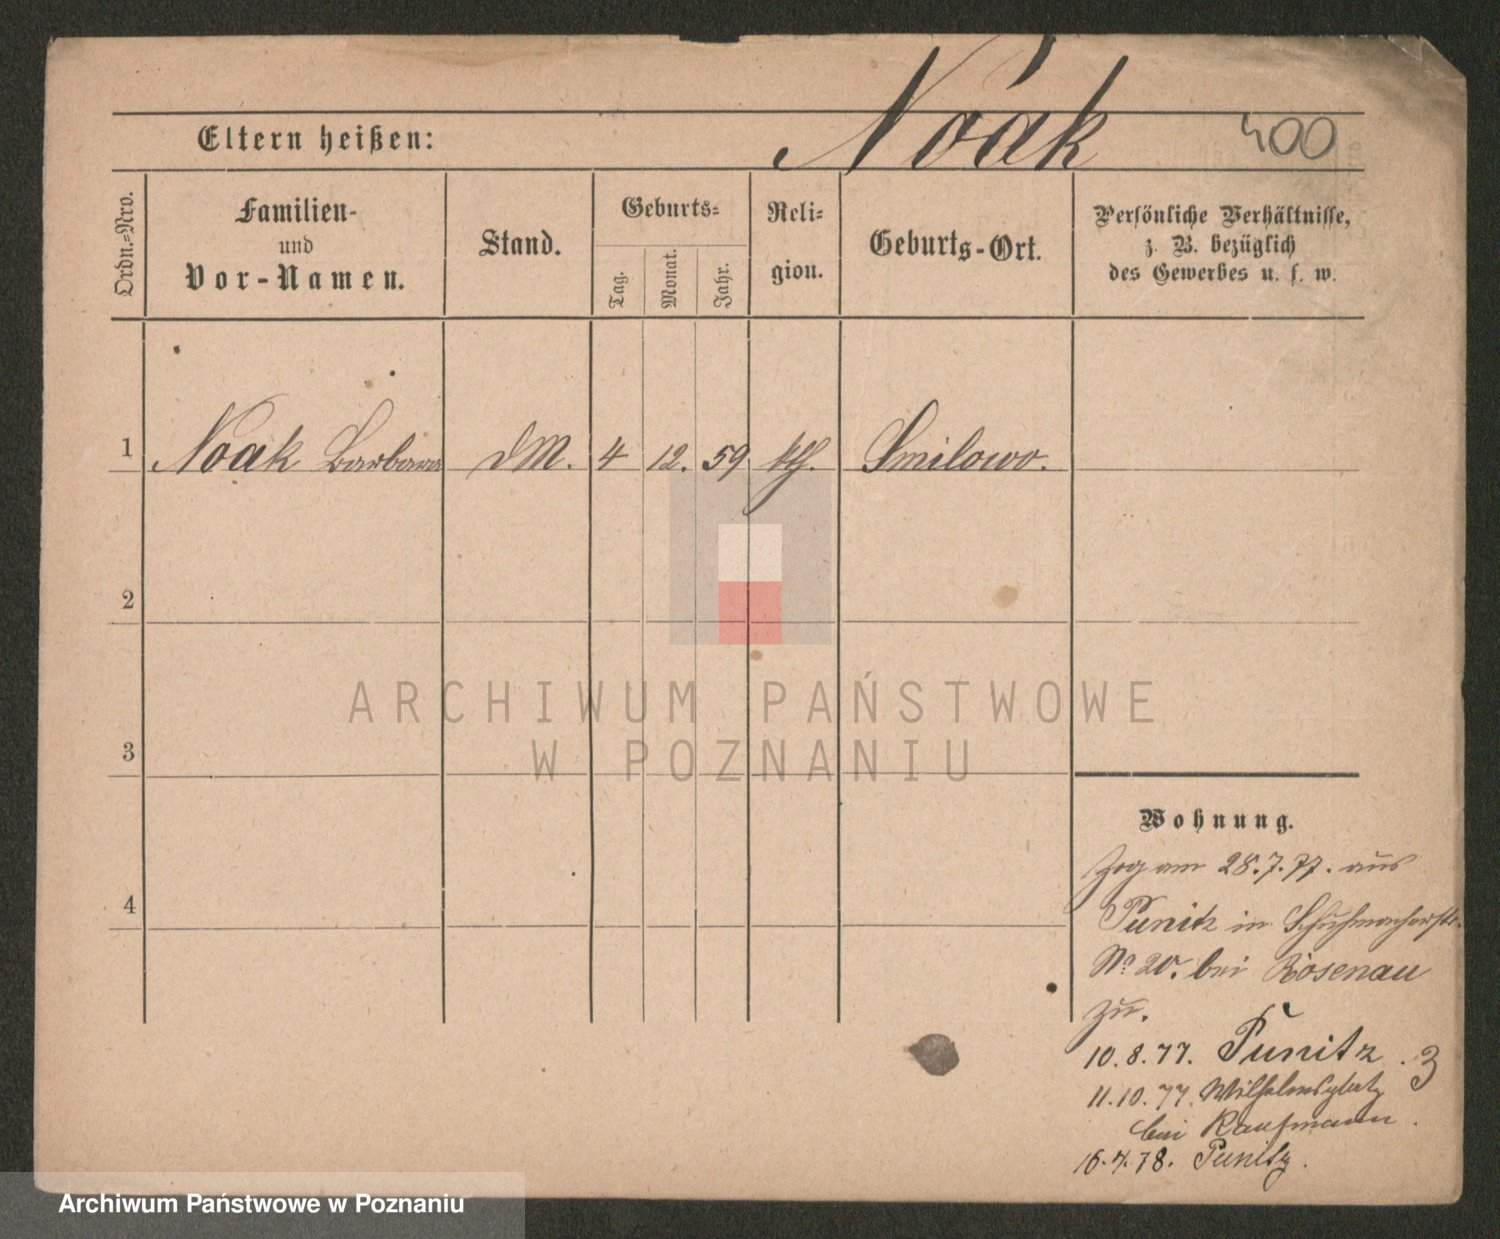 Noak
400
Eltern heißen:
Ordn.=Nro.
Familien-
und
Vor-Namen.
Stand.
Geburts=
Tag.
Monat.
Jahr.
Reli=
gion.
Geburts-Ort.
Persönliche Verhältnisse,
z. B. bezüglich
des Gewerbes u. s. w.
1 Noak Barbara DM. 4 12. 59 kth. Smilowo.
2
3
4
ARCHIWUM PAŃSTWOWE
W POZNANIU
Wohnung.
Zog am 28.7.77. aus
Punitz in Schuhmacherstr.
No 20. bei Rosenau
zu.
10.8.77. Punitz.
11.10.77. Wilhelmsplatz 3
bei Kaufmann.
16.4.78. Punitz.
Archiwum Państwowe w Poznaniu